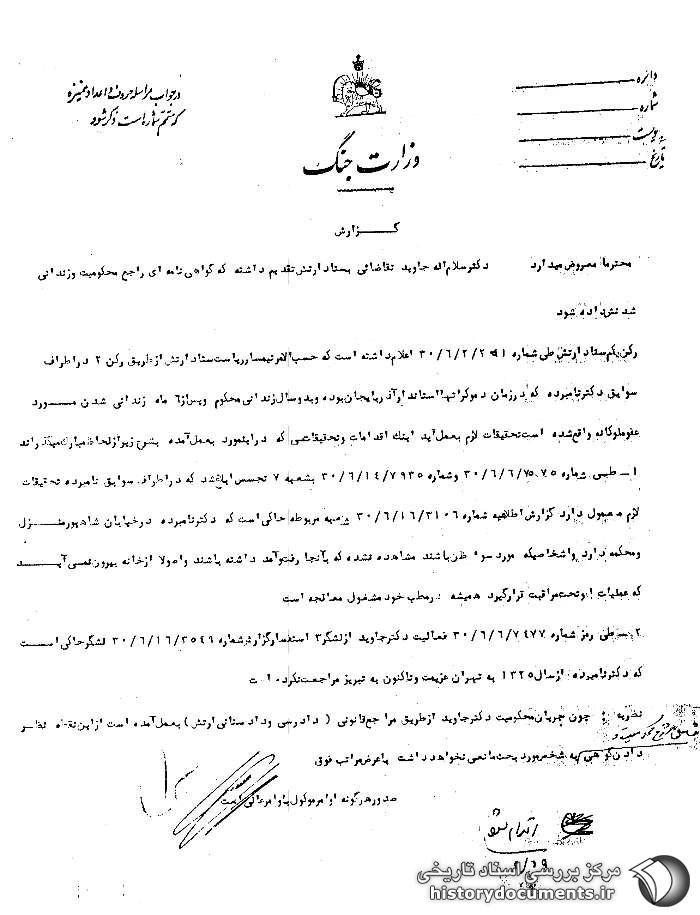 در جواب مراسله حروف و اعداد ممیزه
که متمم شماره است ذکر شود
دائره
شماره
پیوست
تاریخ
وزارت جنگ
گـــزارش
محترما معروض میدارد دکتر سلام اله جاوید تقاضائی بستاد ارتش تقدیم داشته که گواهی نامه ای راجع محکومیت وزندانی
شدنش داده شود
رکن یکم ستاد ارتش طی شماره ۳۰/۶/۲/۲ اعلام داشته است که حسب الامر تیمسار ریاست ستاد ارتش از طریق رکن ۲ در اطراف
سوابق دکتر نامبرده که در زمان دموکراتها استاندار آذربایجان بوده و بدو سال زندانی محکوم و پس از ۶ ماه زندانی شدن مـــورد
عفو ملوکانه واقع شده است تحقیقات لازم بعمل آید اینك اقدامات و تحقیقاتی که در اینمورد بعمل آمده بشرح زیر از لحاظ مبارك میگذراند
۱ـ طی شماره ۳۰/۶/۶/۷۵۰۷۵ وشماره ۳۰/۶/۱۴/۷۹۳۵ بشعبه ۷ تجسس ابلاغ شد که در اطراف سوابق نامبرده تحقیقات
لازم معمول دارد گزارش اطلاعیه شماره ۳۰/۶/۱۶/۳۱۰۶ شعبه مربوطه حاکی است که دکتر نامبرده در خیابان شاهپور منـــزل
ومحکمه دارد و اشخاصیکه مورد سوء ظن باشند مشاهده نشده که بآنجا رفت و آمد داشته باشند و اصولا از خانه بیرون نمی آیـــد
که عملیات او تحت مراقبت قرار گیرد همیشه در مطب خود مشغول معالجه است
۲ـ طی رمز شماره ۳۰/۶/۶/۷۴۷۷ فعالیت دکتر جاوید از لشگر ۳ استفسار گزارش شماره ۳۰/۶/۱۶/۳۵۴۹ لشگر حاکی اســـت
که دکتر نامبرده از سال ۱۳۲۵ به تهران عزیمت و تاکنون به تبریز مراجعت نکرده است
نظریه : چون جریان محکومیت دکتر جاوید از طریق مراجع قانونی ( دادرسی و دادستانی ارتش ) بعمل آمده است از این نقطه نظر
دادن گواهی به شخص مورد بحث مانعی نخواهد داشت با عرض مراتب فوق
صدور هرگونه اوامر موکول باوامر عالی است
اقدام شود
مرکز بررسی اسناد تاریخی
historydocuments.ir